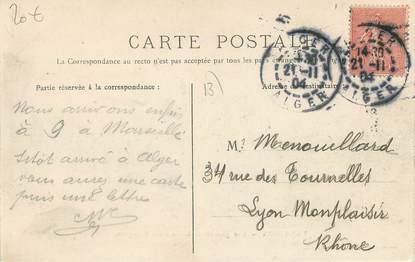 20€
CARTE POSTALE
La Correspondance au recto n'est pas acceptée par tous les pays étrangers
Partie réservée à la correspondance:
Adresse
13)
ALGER
14-30
21-11
04
ALGER
21-11
04
ALGER
Nous arrivons enfin
à 9 à Marseille
sitôt arrivé à Alger
vous aurez une carte
puis une lettre
Mr Menouillard
34 rue des Tournelles
Lyon Monplaisir
Rhône